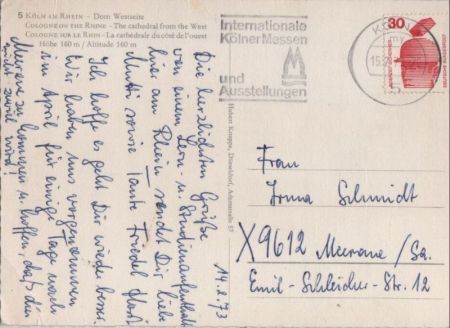 5 KÖLM AM RHEIN - Dom Westseite
COLOGNE ON THE RHINE - The cathedral from the West
COLOGNE SUR LE RHIN - La cathédrale du côté de l'ouest
Höhe 160 m / Altitude 160 m
Internationale
KölnerMessen
und
Ausstellungen
30
Hubert Knuppe, Düsseldorf, Adersstraße 57
14.2.73
Die herzlichsten Grüße
von einem Lern- u. Studienaufenthalt
hier am Rhein sendet Dir, liebe
Mutti sowie Tante Friedel
Ich hoffe es geht Dir wieder besser.
Wir haben uns vorgenommen
im April für einige Tage nach
Meerane zu kommen u. hoffen, daß dir
nicht zuviel wird!
Frau
Irma Schmidt
X9612 Meerane/Sa.
Emil-Schleicher-Str. 12